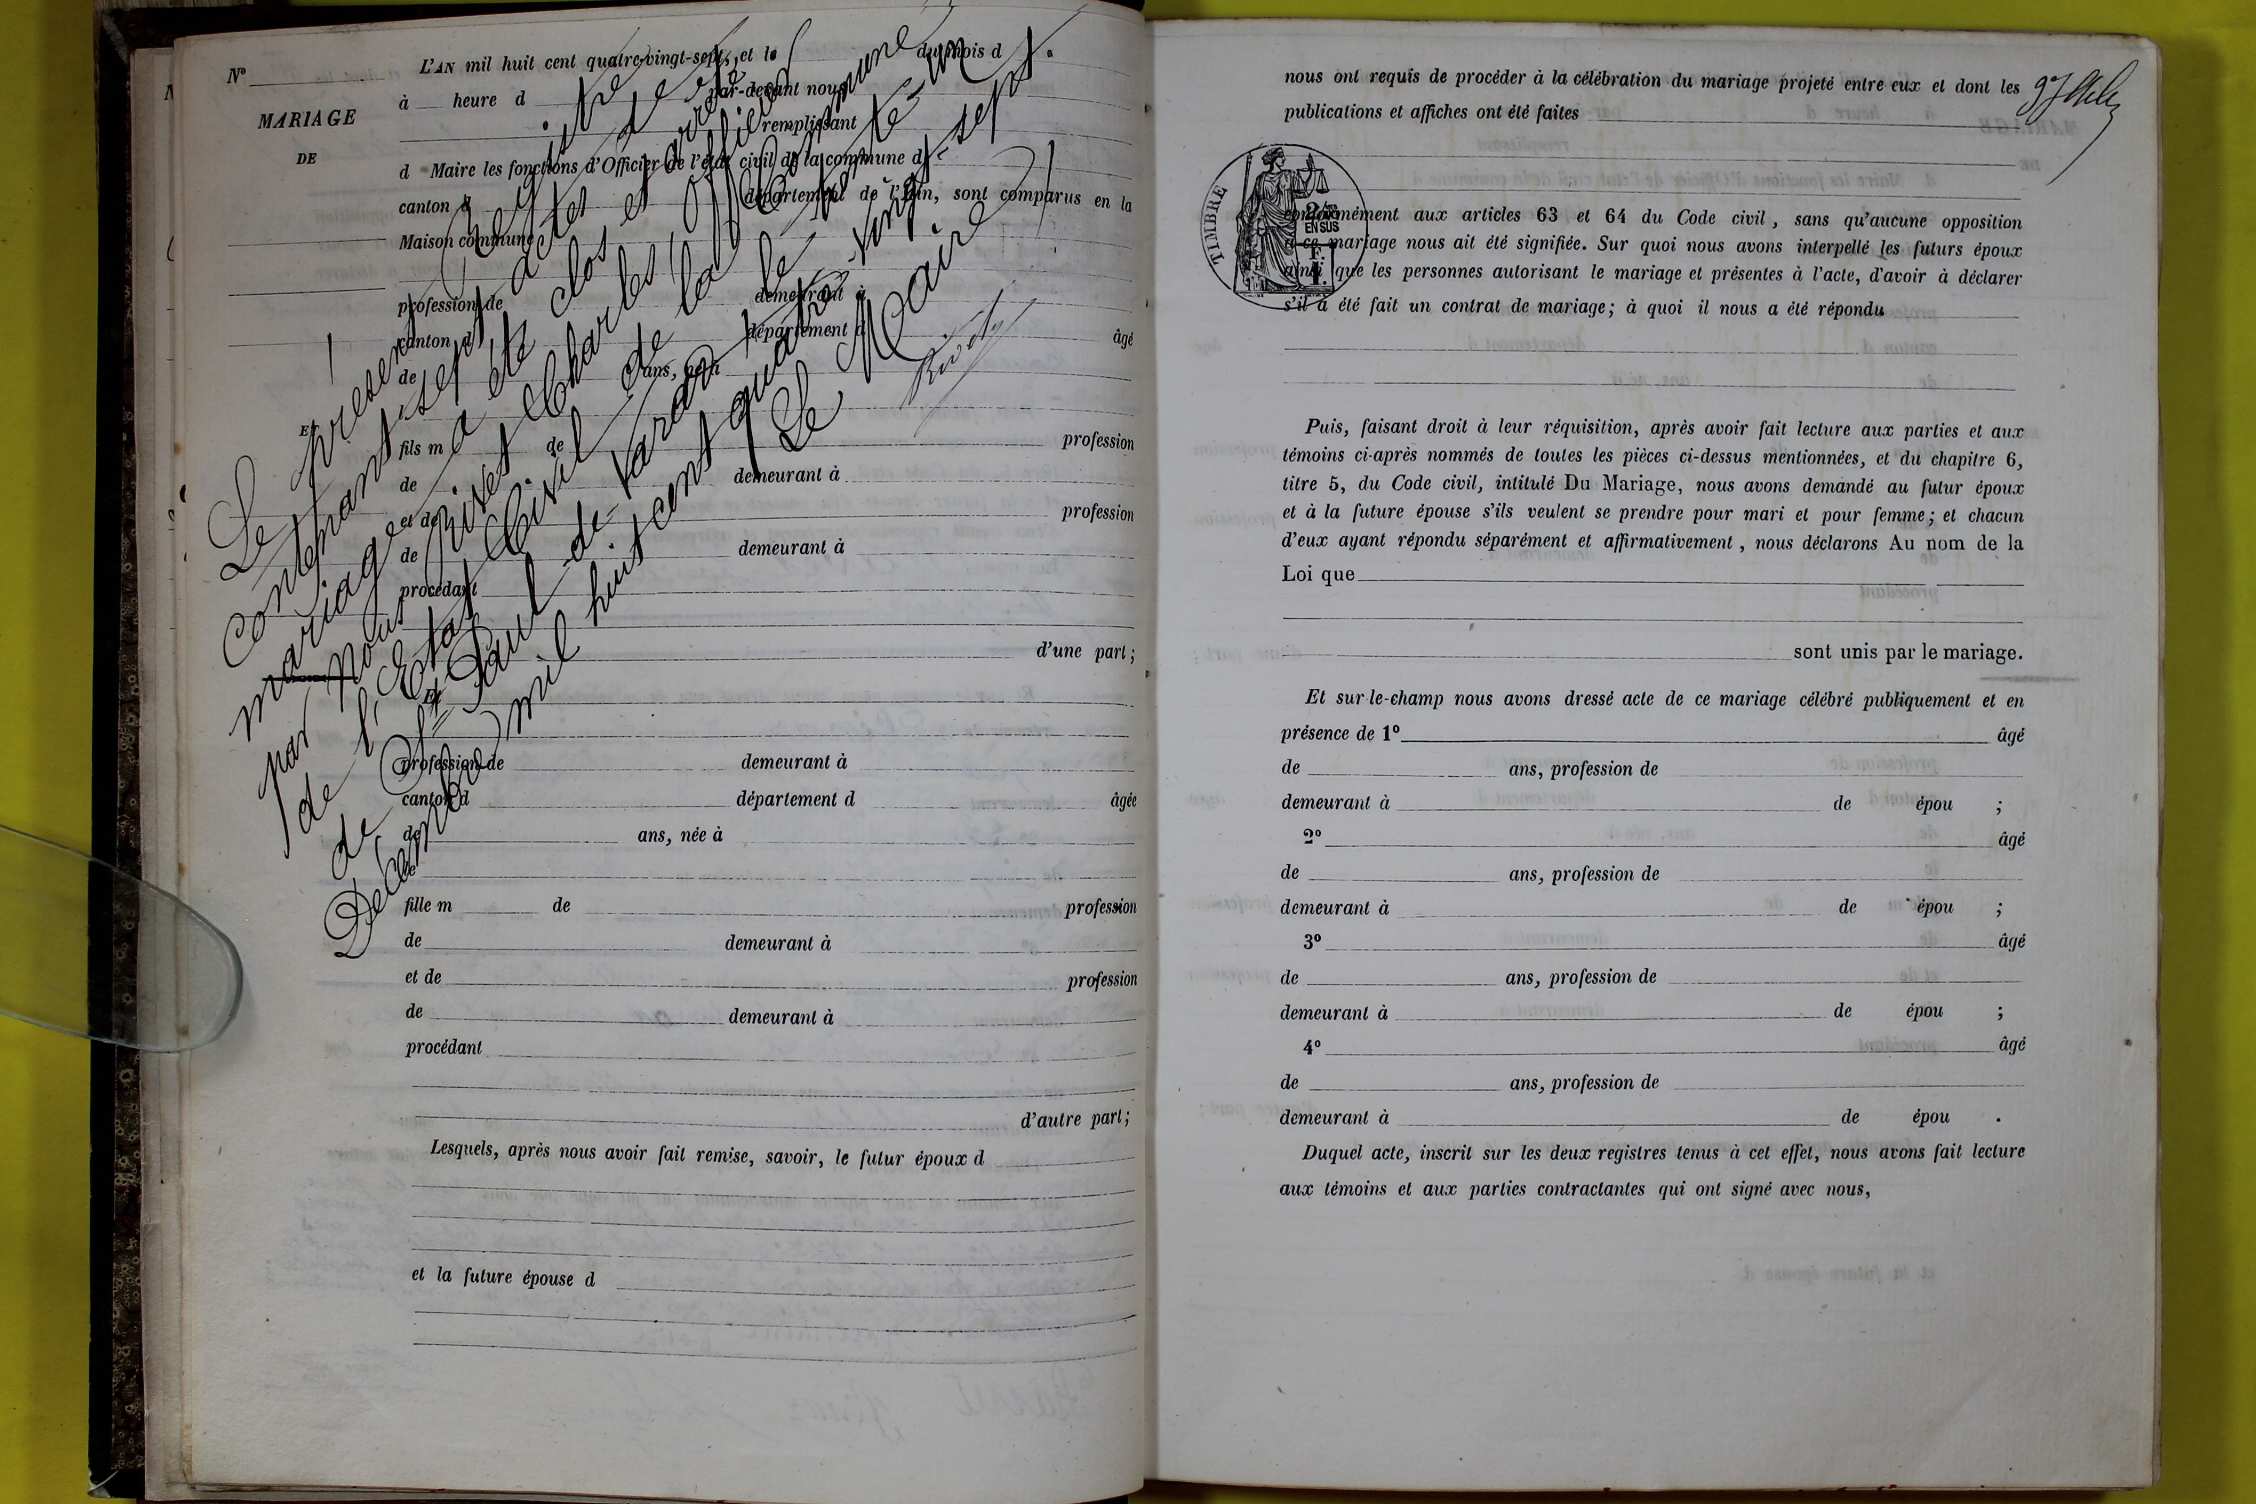 N°
MARIAGE
DE
ET
L'AN mil huit cent quatre-vingt-sept, et le du mois d
à heure d par-devant nous
remplissant
d Maire les fonctions d'Officier de l'état civil de la commune d
canton d département de l'Ain, sont comparus en la
Maison commune
profession de demeurant à
canton d département d âgé
de ans, né à
fils m de profession
de demeurant à
et de profession
de demeurant à
procédant
d'une part;
Et
profession de demeurant à
canton d département d âgée
de ans, née à
le
fille m de profession
de demeurant à
et de profession
de demeurant à
procédant
d'autre part;
Lesquels, après nous avoir fait remise, savoir, le futur époux d
et la future épouse d
Le présent Registre
contenant sept actes de
mariage a été clos et arrêté
par nous Rivet Charles Officier
de l'Etat Civil de la Commune
de St Paul de Varax le trente-un
Décembre mil huit cent quatre-vingt-sept.
Le Maire
Rivet
nous ont requis de procéder à la célébration du mariage projeté entre eux et dont les
publications et affiches ont été faites
TIMBRE
2/10
EN SUS
F.
1.
conformément aux articles 63 et 64 du Code civil, sans qu'aucune opposition
à ce mariage nous ait été signifiée. Sur quoi nous avons interpellé les futurs époux
ainsi que les personnes autorisant le mariage et présentes à l'acte, d'avoir à déclarer
s'il a été fait un contrat de mariage; à quoi il nous a été répondu
Puis, faisant droit à leur réquisition, après avoir fait lecture aux parties et aux
témoins ci-après nommés de toutes les pièces ci-dessus mentionnées, et du chapitre 6,
titre 5, du Code civil, intitulé Du Mariage, nous avons demandé au futur époux
et à la future épouse s'ils veulent se prendre pour mari et pour femme; et chacun
d'eux ayant répondu séparément et affirmativement, nous déclarons Au nom de la
Loi que
sont unis par le mariage.
Et sur-le-champ nous avons dressé acte de ce mariage célébré publiquement et en
présence de 1° âgé
de ans, profession de
demeurant à de épou ;
2° âgé
de ans, profession de
demeurant à de épou ;
3° âgé
de ans, profession de
demeurant à de épou ;
4° âgé
de ans, profession de
demeurant à de épou .
Duquel acte, inscrit sur les deux registres tenus à cet effet, nous avons fait lecture
aux témoins et aux parties contractantes qui ont signé avec nous,